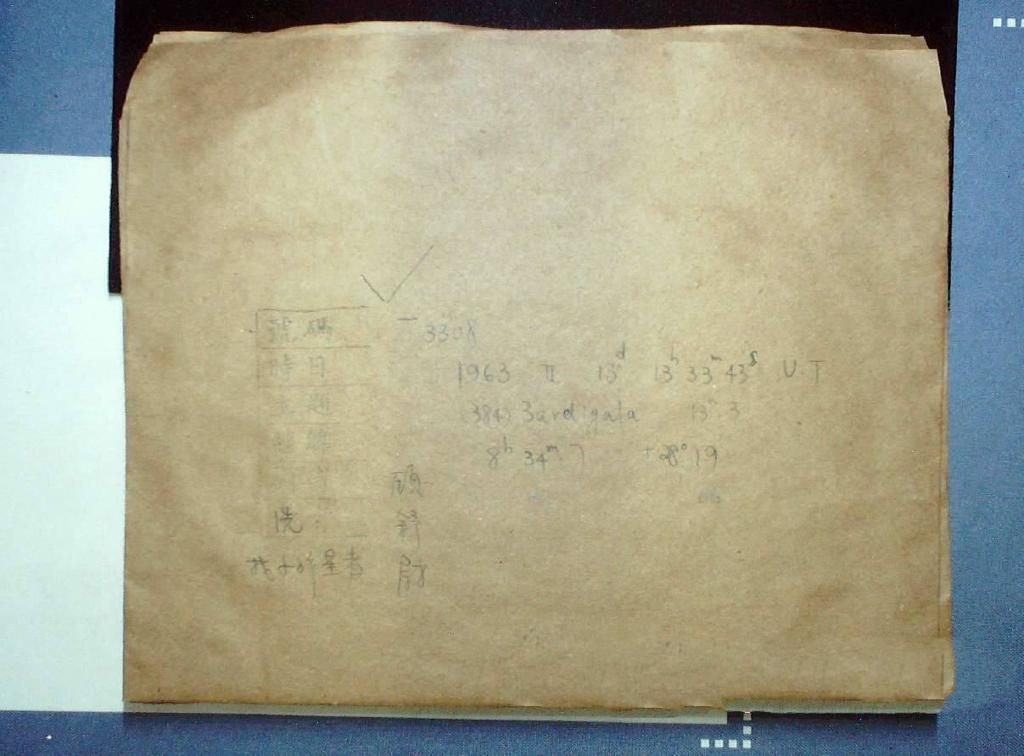 號碼 3308
時日 1963 II 13ᵈ 13ʰ 33ᵐ 43ˢ U.T
題 (384) Bardigala 13ᵐ.3
8ʰ 34ᵐ.7 +28°19
洗
找小行星者